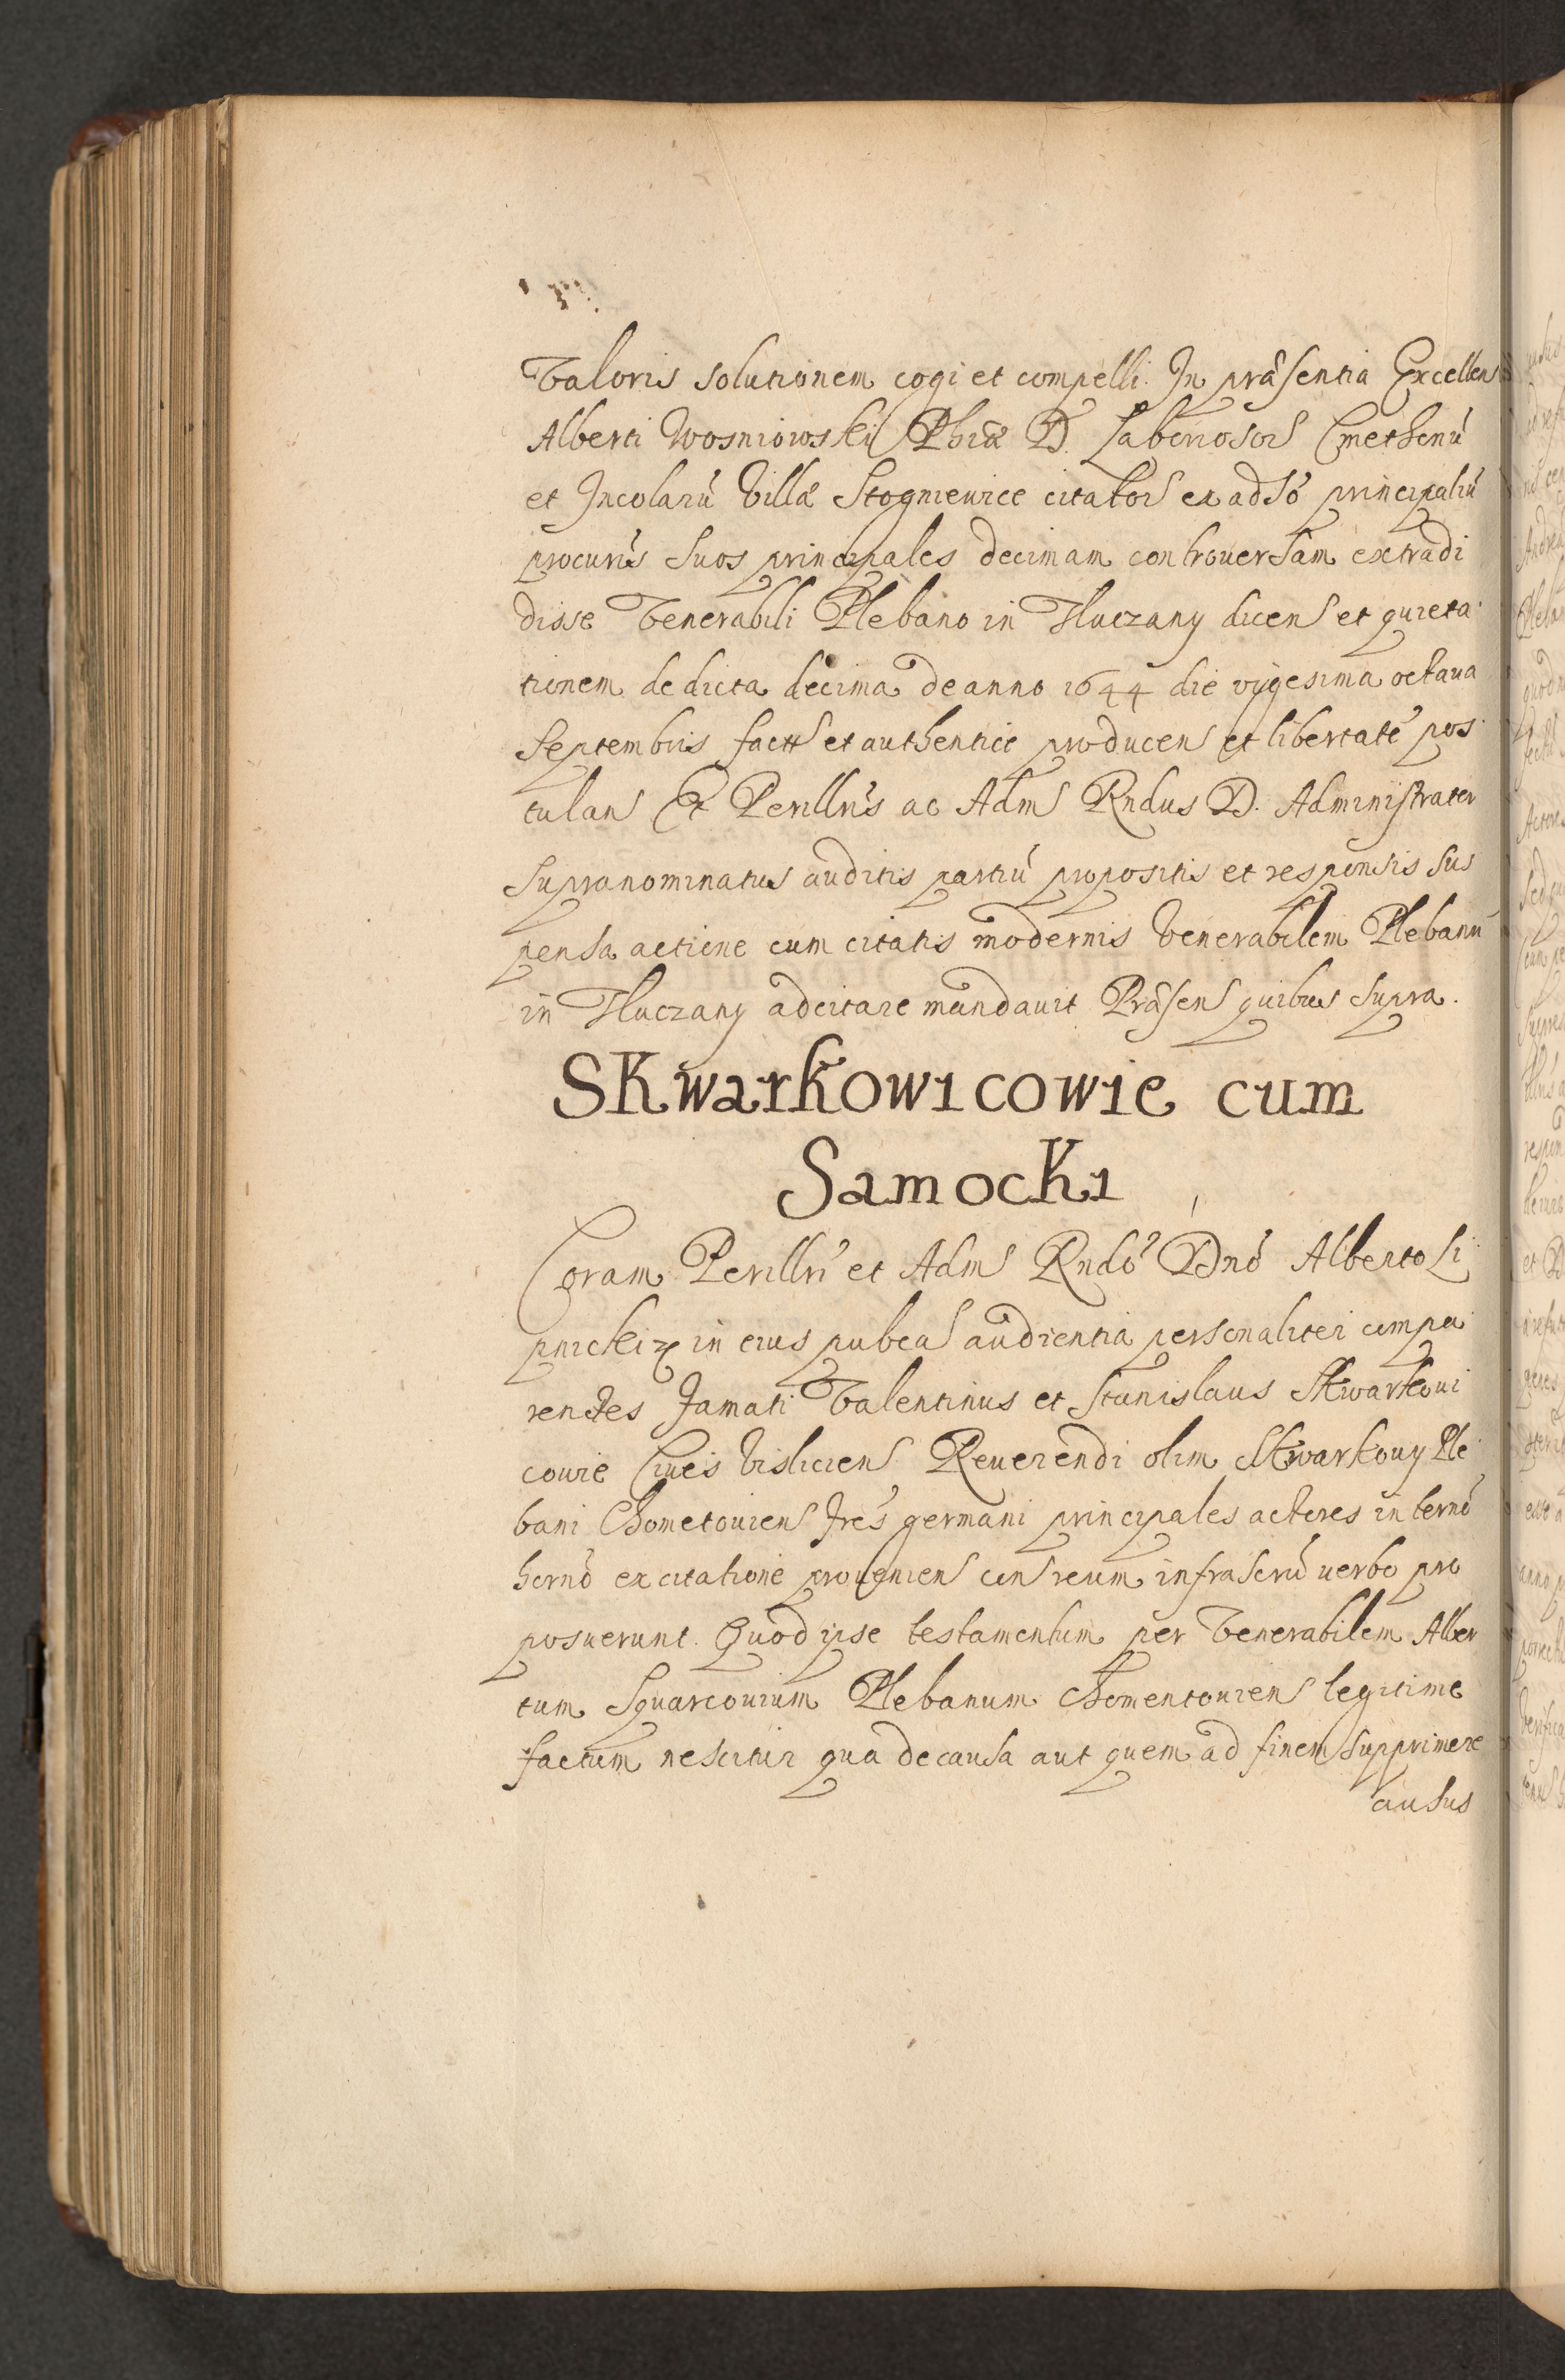 Valoris solutionem cogi et compelli. In præsentia Excellens
Alberti Wosniowski Phiæ D. Laboriosor Cmethonū
et Incolarū Villæ Stogniewice citator ex adso principaliū
procuris suos principales decimam controuersam extradi
disse Venerabili Plebano in Tluczany dicens et quieta
tionem de dicta decima de anno 1644 die vigesima octaua
Septembris factā et authentice producens et libertatē pos
tulans Et Perillris ac Adms Rndus D. Administrator
supranominatus auditis partiū propositis et responsis sus
pensa actione cum citatis modernis Venerabilem Plebanū
in Tluczany adcitare mandauit Præsens quibus supra.
SKwarkowicowie cum
Samocki
Coram Perillri et Adm Rndo Dno Alberto Li
pnicki in eius pubca audientia personaliter compa
rentes Famati Valentinus et Stanislaus Skwarkoui
couie Ciues Vislicien Reuerendi olim Skwarkouy Ple
bani Chometouien frēs germani principales actores in termō
hornō ex citatione prouenien con reum infrascrū verbo pro
posuerunt. Quod ipse testamentum per Venerabilem Alber
tum Squarcouium Plebanum Chomentouien legitime
factum nescitur qua de causa aut quem ad finem supprimere
ausus